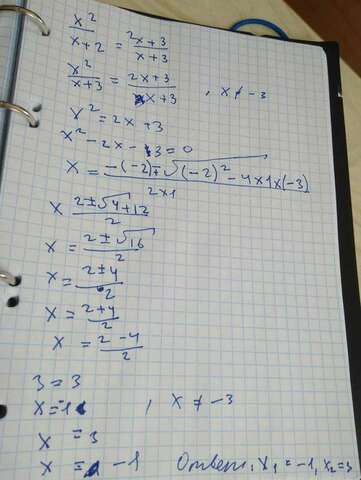 x²/x+2 = 2x+3/x+3
x²/x+3 = 2x+3/x+3 , x ≠ -3
x² = 2x+3
x² - 2x - 3 = 0
x = -(-2)±√(-2)² - 4×1×(-3)/2×1
x 2±√4+12/2
x = 2±√16/2
x = 2±4/2
x = 2+4/2
x = 2-4/2
3 = 3
x = -1 , x ≠ -3
x = 3
x = -1 Ответ, x₁ = -1, x₂ = 3